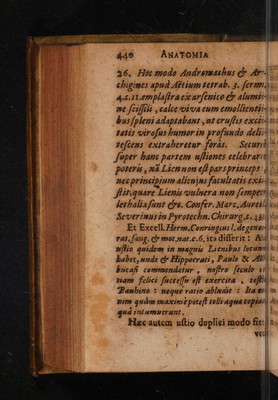 440 ANATOMIA
26. Hoc modo Andromachus & Ar-
chigines apud Aëtium tetrab. 3. serm.
4.c.11.emplastra ex arsenico & alumi-
ne scissili, calce viva cum emollienti-
bus spleni adaptabant, ut crustis exci-
tatis virosus humor in profundo deli-
tescens extraheretur foràs. Securè
super hanc partem ustiones celebrare
poteris, nã Lien non est pars princeps
nec principium alicujus facultatis exi-
stit, quare Lienis vulnera non semper
lethalia sunt &c. Confer. Marc. Aurel.
Severinus in Pyrotechn. Chirurg. c. 43.
Et Excell. Herm. Conringius l. de gene-
rat. sang. & mot. nat. c. 6. ita disserit:
ustio quidem in magnis Lienibus locum
habet, unde & Hippocrati, Paulo &
bucasi commendetur, nostro seculo
nam felici successu est exercita,
Bauhino: neque ratio abludit: Ita
nim quàm maximè potest tolli aquæ copia
quâ intumuerunt.
Hæc autem ustio duplici modo